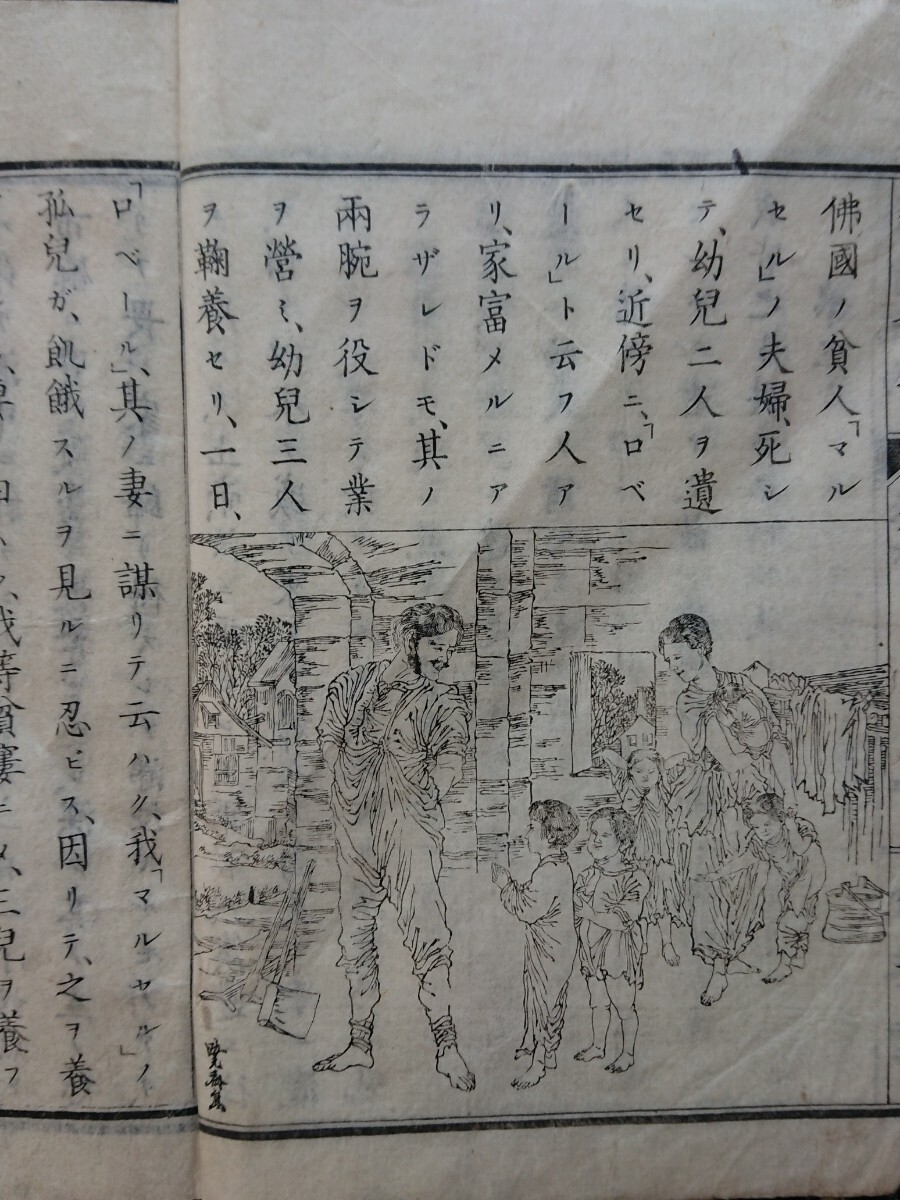 佛國ノ貧人「マル
セル」ノ夫婦、死シ
テ、幼兒二人ヲ遺
セリ、近傍ニ、「ロベ
ール」ト云フ人ア
リ、家富メルニア
ラザレドモ、其ノ
兩腕ヲ役シテ業
ヲ營ミ、幼兒三人
ヲ鞠養セリ、一日、
「ロベール」、其ノ妻ニ謀リテ云ハク、我「マルセル」ノ
孤兒ガ、飢餓スルヲ見ルニ忍ビス、因リテ、之ヲ養
我等貧窶ニ、三兒ヲ養フ